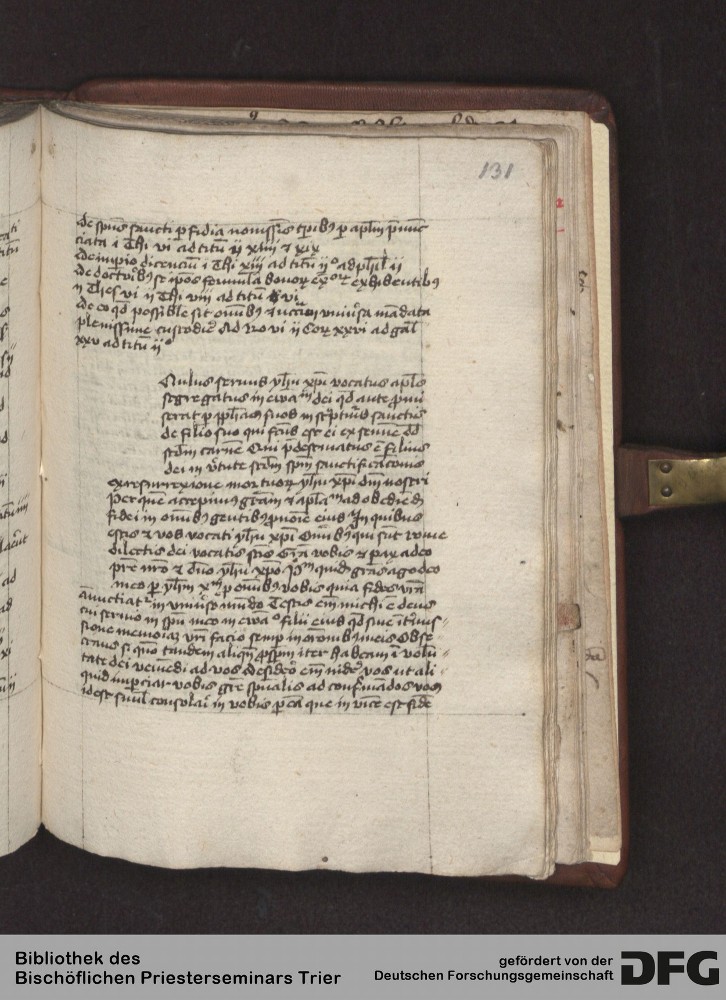 131
de spūs sancti p̱fidia nouissīs tꝑib9 ꝑ aplm̄ p̄nunc
ciata i Thi vi ad titū ij xliiij ⁊ xix
de impio dicenciū i Thi xiij ad titū ij° ad phil ii
de doctorib9 se ip̄os formula bonoꝝ exhibentib9
ii Thes vi ii Thi viii ad titū vi
de eo qd possibile sit omīb9 mandata
plenissime custodire Ad Ro vi ii Cor xxvi ad gal
xxv ad titū ij°
Paulus seruus yhū xp̄i vocatus apl̄s
segregatus in ewāᵐ dei qd ante p̄mi
serat ꝑ ꝓph̄as suos in sc̄pturis sanctis
de filio suo qui fcūs est ei ex semīe dd
scd̄m carnē Qui p̄destinatus ē filius
dei in v̄tute scd̄m spm̄ sanctificac̄onis
ex resurrexione mortuoꝝ yhū xp̄i dn̄i nostri
Per quē accepimus grām ⁊ apl̄aᵐ ad obediēdū
fidei in omīb9 gentib9 ꝓ noīe eius In quibus
estis ⁊ vos vocati yhū xp̄i Om̄ib9 qui sūt rome
dilectis dei vocatis sc̄is Grā vobis ⁊ pax a deo
pr̄e nr̄o ⁊ dn̄o yhū xp̄o Pᵐ quidē grās ago deo
meo ꝑ yhm̄ xᵐ ꝓ omīb9 vobis quia fides vr̄a
annūctiatʳ in vniūso mūdo Testis em̄ michi ē deus
cui seruio in spū meo in ewā° filii eius qd sine īt̄mis-
sione memoriā vr̄i facio semꝑ in orōnib9 meis Obse-
crans si quō tandem aliqn̄ ꝓspm̄ iter habeam ī volū-
tate dei veniēdi ad vos desidero em̄ videre vos vt ali-
quid impciar vobis grē spūalis ad confirmādos vos
id est simul consolari in vobis ꝑ eā que in vicē est fidē
Bibliothek des
Bischöflichen Priesterseminars Trier
gefördert von der
Deutschen Forschungsgemeinschaft
DFG